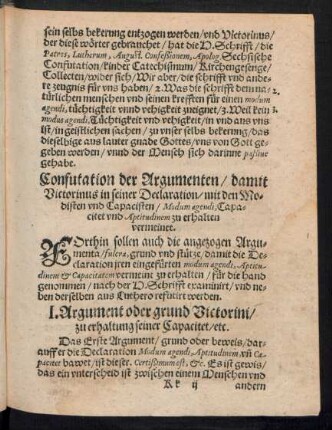 sein selbs bekerung entzogen werden/vnd Victorinus/
der diese wörter gebrauchet / hat die D. Schrifft / die
Patres, Lutherum, August. Confessionem, Apolog. Sechsische
Confutation / kinder Catechismum / Kirchengesenge/
Collecten/wider sich/Wir aber/die schrifft vnd ande=
re zeugnis für vns haben / 2. Was die schrifft dem na=
türlichen menschen vnd seinen krefften für einen modum
agendi, tüchtigkeit vnd vehigkeit zueignet/3. Weil kein
modus agendi, Tüchtigkeit vnd vehigkeit/in vnd ans vns
ist/in geistlichen sachen / zu vnser selbs bekerung/das
dieselbige aus lauter gnade Gottes/vns von Gott ge=
geben werden /vnnd der Mensch sich darinne passiue
gehabe.
Confutation der Argumenten / damit
Victorinus in seiner Declaration / mit den Mo=
disten vnd Capacisten / Modum agendi, Capa=
citet vnd Aptitudinem zu erhalten
vermeinet.
FOrthin sollen auch die angezogen Argu=
menta / fulcra, grund vnd stütze / damit die De=
claration jren eingefürten modum agendi, Aptitu=
dinem & Capacitatem vermeint zu erhalten / für die hand
genommen / nach der D. Schrifft examinirt/vnd ne=
ben derselben aus Luthero refutirt werden.
I. Argument oder grund Victorini/
zu erhaltung seiner Capacitet/etc.
Das Erste Argument / grund oder beweis/dar=
auff er die Declaration Modum agendi, Aptitudinem vñ Ca=
pacitet bawet/ist dieser. Certissimum est, &c. Es ist gewis/
das ein vnterscheid ist zwischen einem Menschen vnd
Kk ij andern